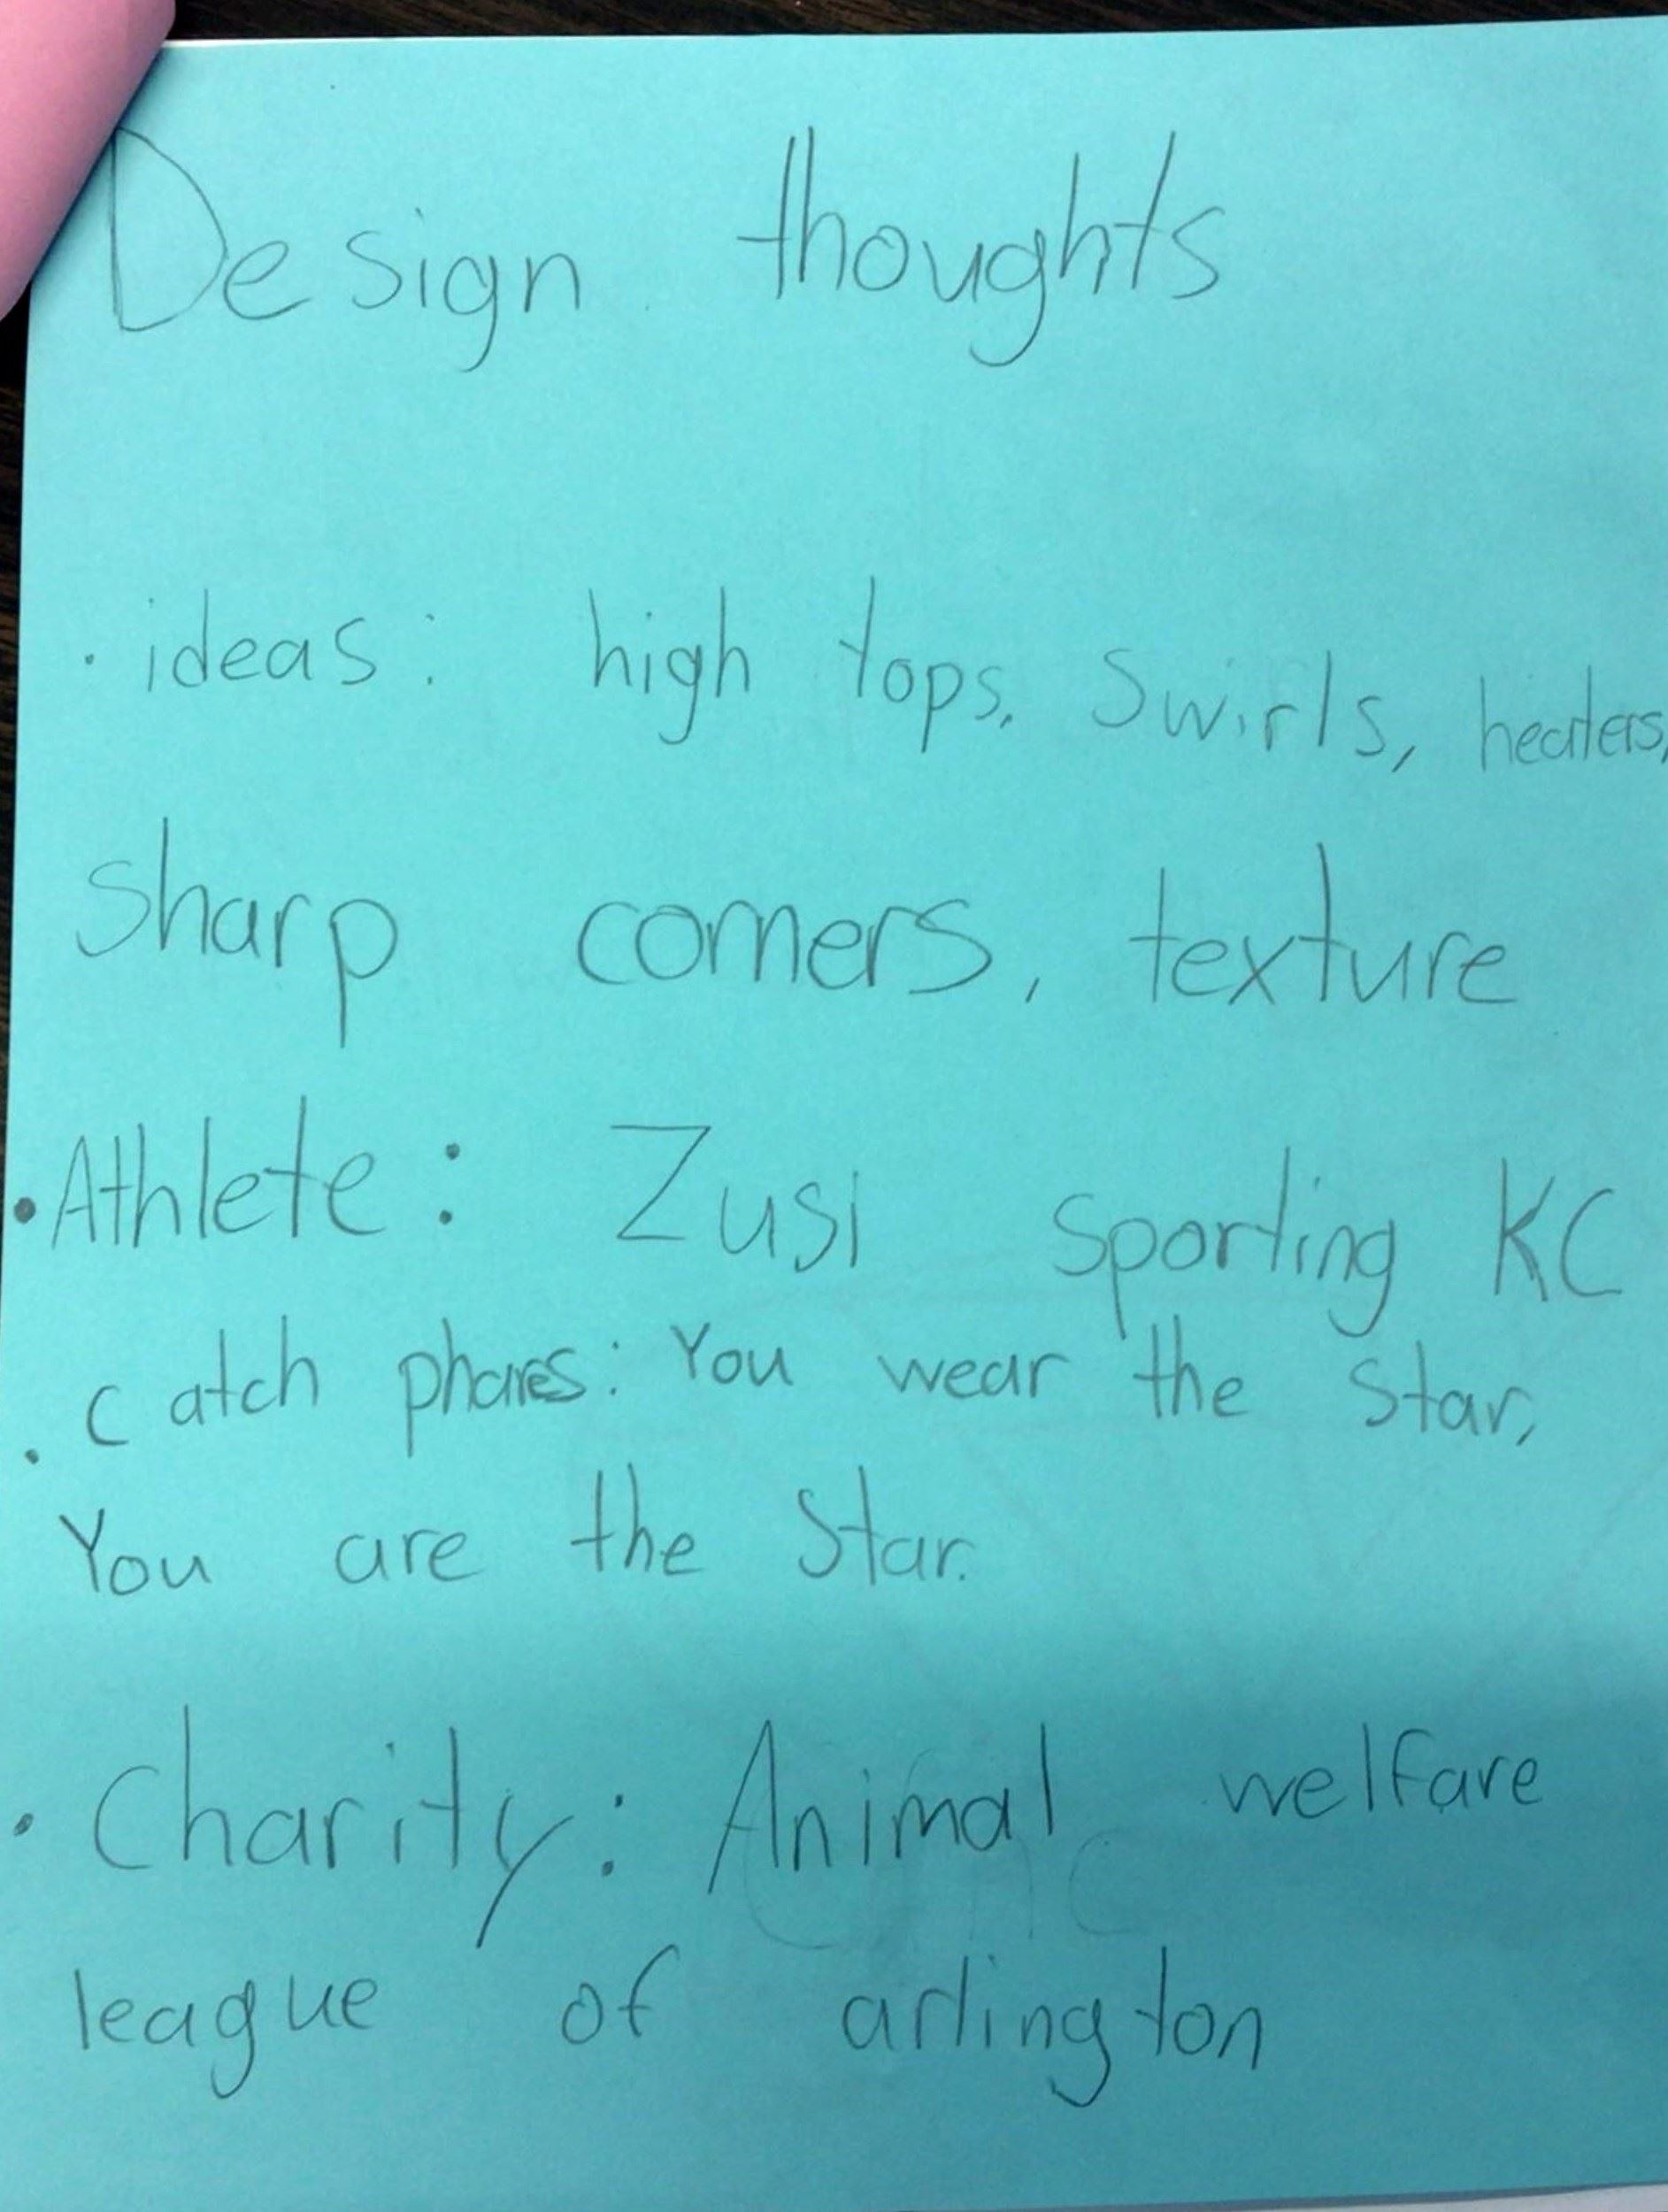 Design thoughts
· ideas: high tops, Swirls, heaters,
Sharp corners, texture
· Athlete: Zusi Sporting KC
· Catch phares: You wear the Star,
You are the Star.
· Charity: Animal welfare
league of arlington